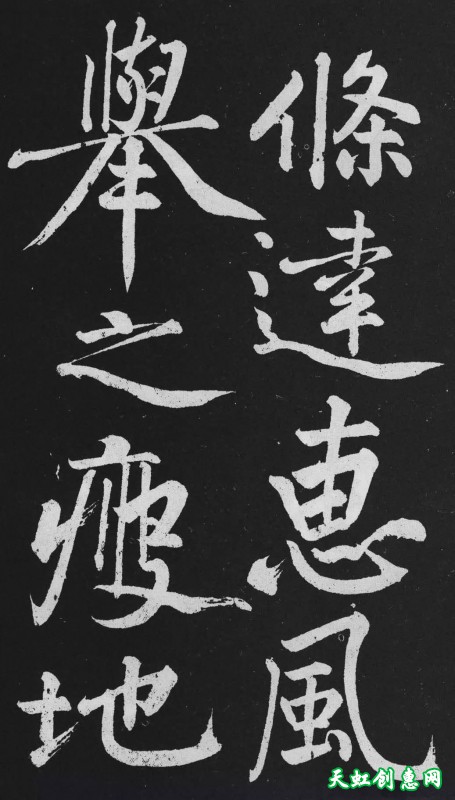 條達惠風
舉之瘦地
天虹创惠网